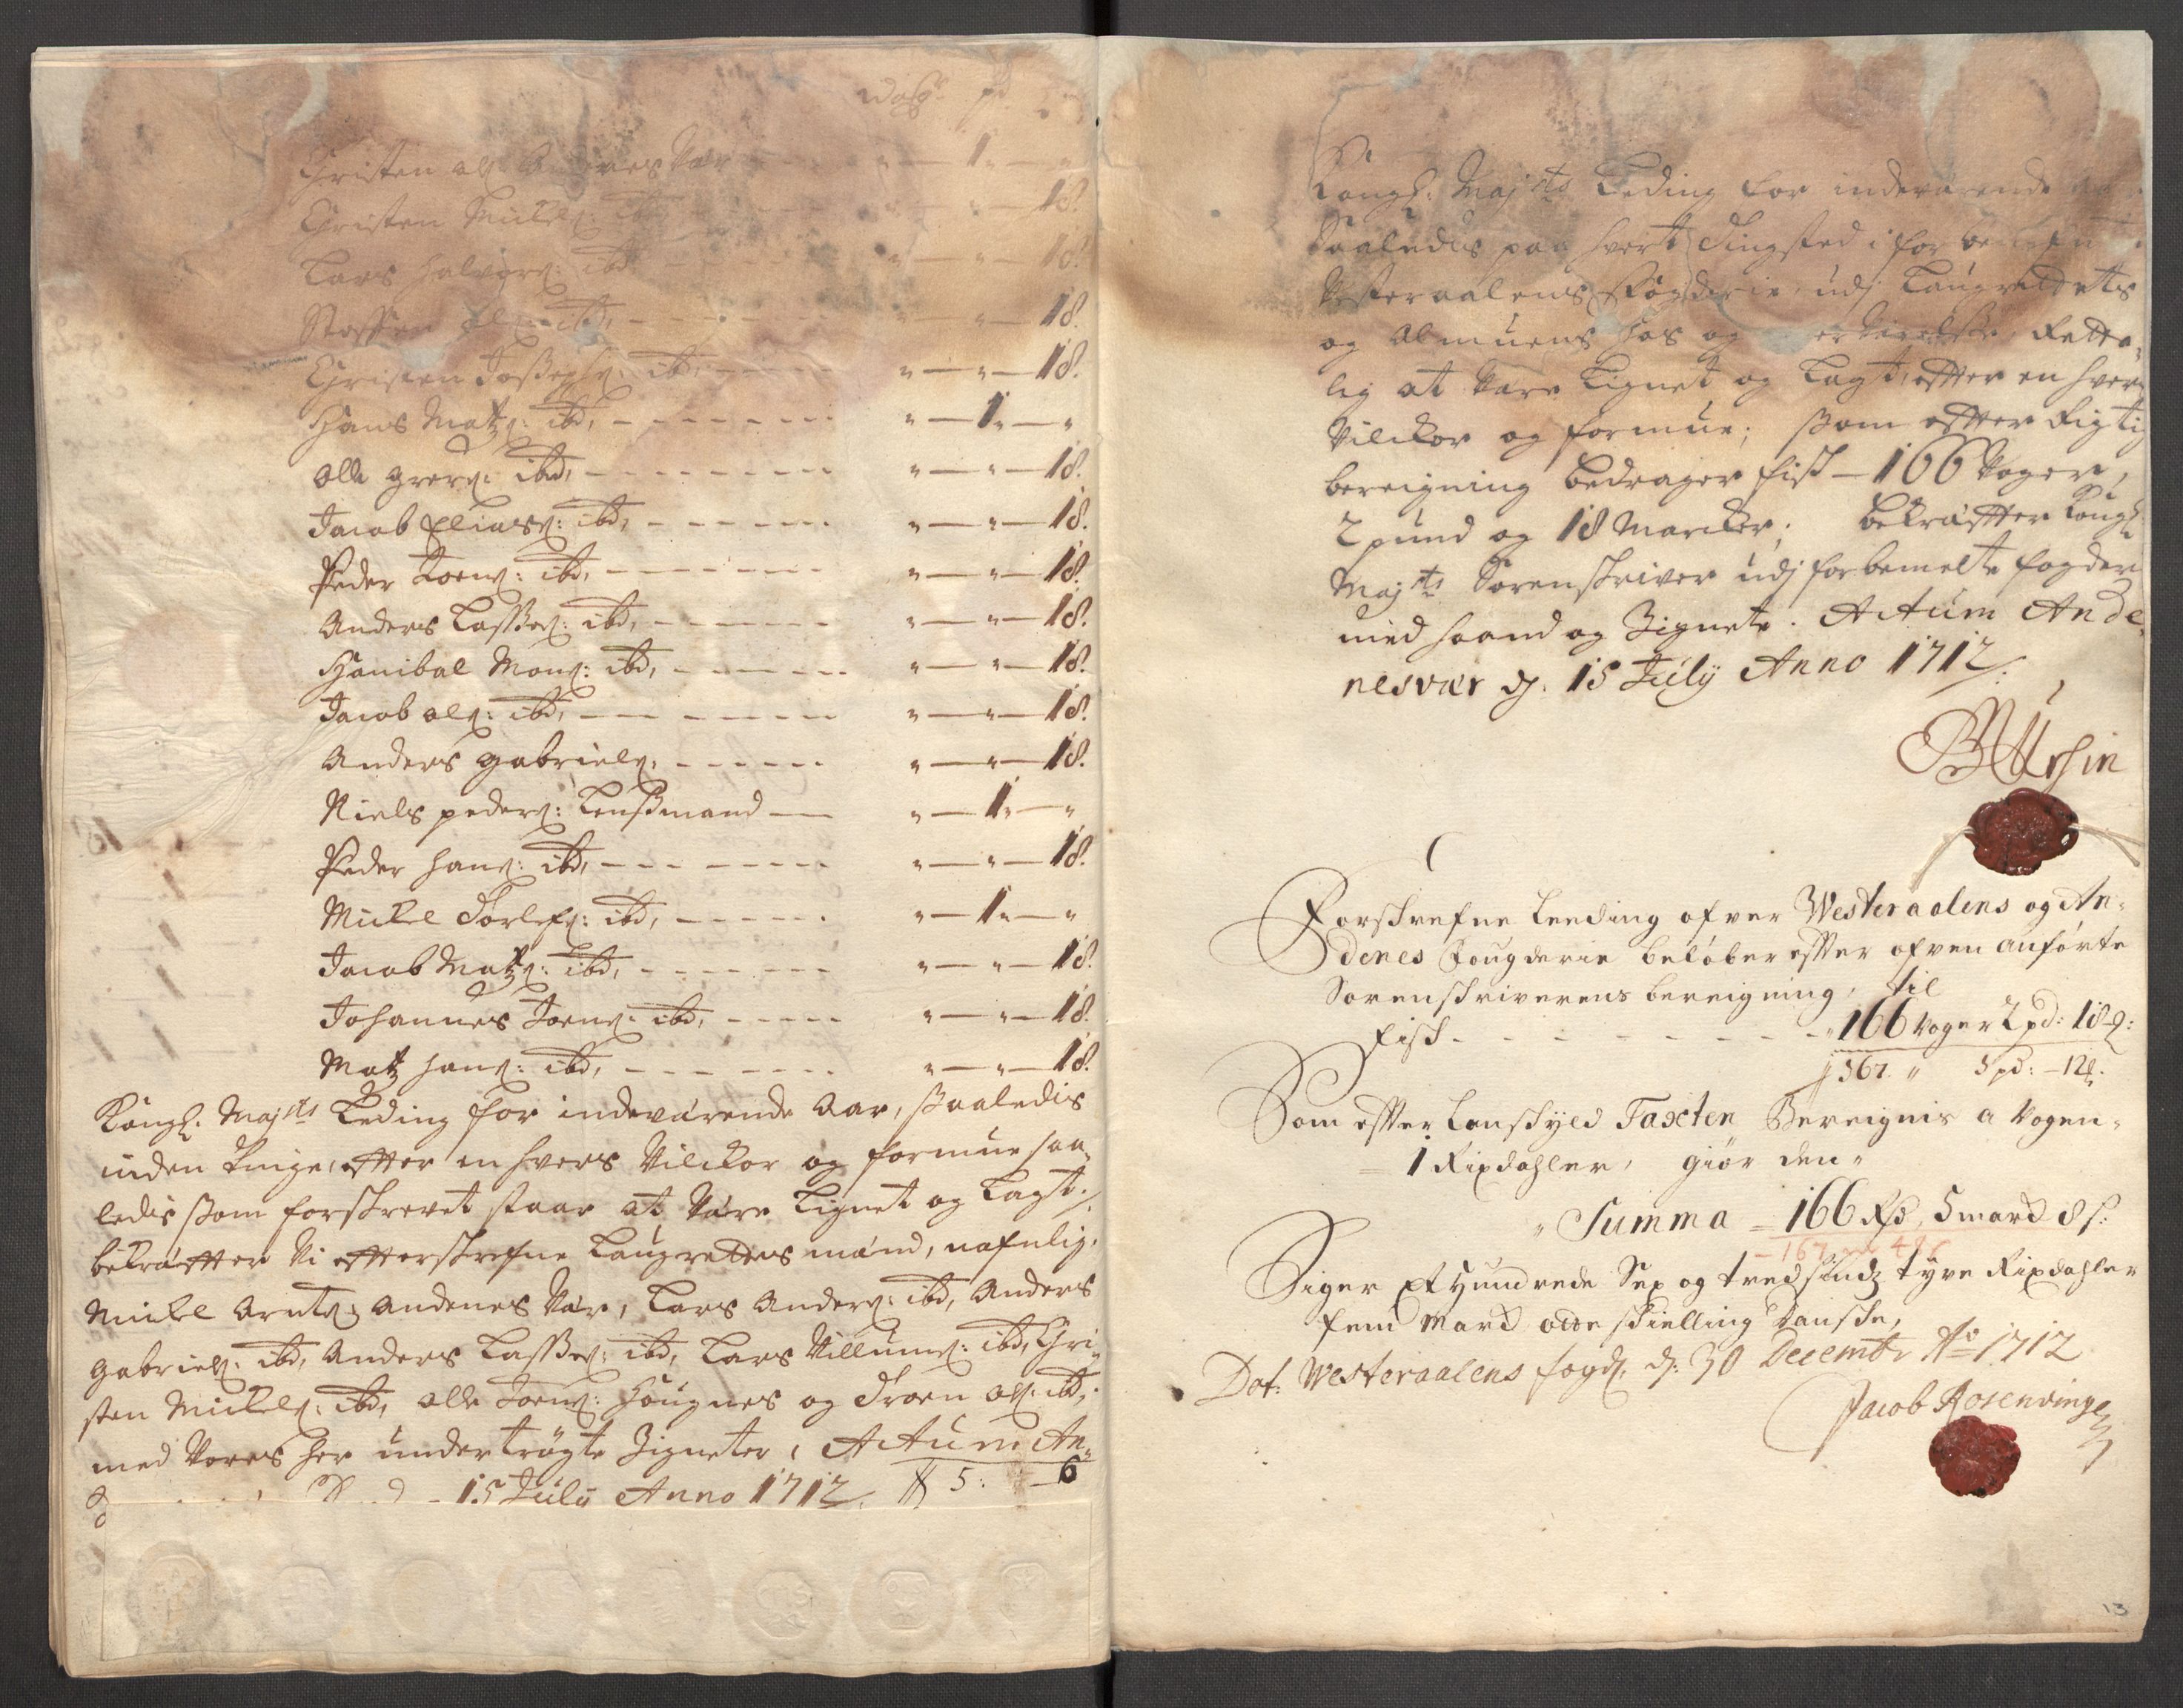 Wog: pd
Christen Ols: Andenes Vær - - " — 1 — "
Christen Mickels: ibd, - - " — " — 18.
Lars Halvors: ibd, - - " — " — 18.
Staffen Ols: ibd, - - - - " — " — 18.
Christen Josephs: ibd, - - - - - " — " — 18.
Hans Matzs: ibd, - - - - - - - " — 1 — "
Olle Grers: ibd, - - - - - - - - " — " — 18.
Jacob Elias: ibd, - - - - - - " — " — 18.
Peder Joens: ibd, - - - - - - - " — " — 18.
Anders Lasses: ibd, - - - - - - " — " — 18.
Hanibal Mons: ibd, - - - - - - " — " — 18.
Jacob Ols: ibd, - - - - - - - " — " — 18.
Anders Gabriels, - - - - - - " — " — 18.
Niels Peders: Lensmand — " — 1 — "
Peder Hans: ibd, - - - - - - - - " — " — 18.
Mickel Torlefs: ibd, - - - - - " — 1 — "
Jacob Matzs: ibd, - - - - - - " — " — 18.
Johannes Joens: ibd, - - - - - " — " — 18.
Matz Hans: ibd, - - - - - - - " — " — 18.
Kongl: Majsts Leding for indeværende Aar, saaledis
inden tinge, efter en hvers Vilckor og formue saa„
ledis som forskrevet staar at være Lignet og Lagt,
bekræfter Vi efterskrefne Laugrettes mænd, nafnlig.
Mickel Arnts: Andenes Vær, Lars Anders: ibd, Anders
Gabriels: ibd, Anders Lasses: ibd, Lars Villums: ibd, Chri„
sten Mickels: ibd, Olle Joens: Haugnes og Troen Ols: ibd,
med Vores her undertrögte Zigneter, Actum An„
15 July Anno 1712. 5: 6
Kongl: Majsts Leding for indeværende
Saaledis paa hvert Tingsted i forbemelte
Vesteraalens Fogderie, udj Laugrettets
og Almuens hos og Retta„
lig at være Lignet og Lagt, efter en hvers
Vilckor og formue; som efter Rigtig
bereigning bedrager fisk — 166 Voger,
2 pund og 18 Marcker; bekræfter Kongl:
Majsts Sorenskriver udj forbemelte fogderi
med haand og Zignete. Actum Ande„
nesvær d. 15 July Anno 1712.
B Ursin
Forskrefne Leeding ofver Westeraalens og An„
denes Fougderie beløber efter ofven anførte
Sorenskriverens bereigning, til
Fisk - - - - - - - - 166 Voger 2 pd: 18 :
167 " pd: — 12 .
Som efter Lanskyld Taxten Bereignis a Vogen„
1 Rixdahler, giør den„
„ Summa = 166 Rd, 5 march 8 s:
— 167
Siger Et Hundrede Sex og tredsindz tyve Rixdahler
fem March otte skielling danske,
Dat: Westeraalens fogd: d: 30 Decembr Ao 1712
Jacob Rosenvinge
13